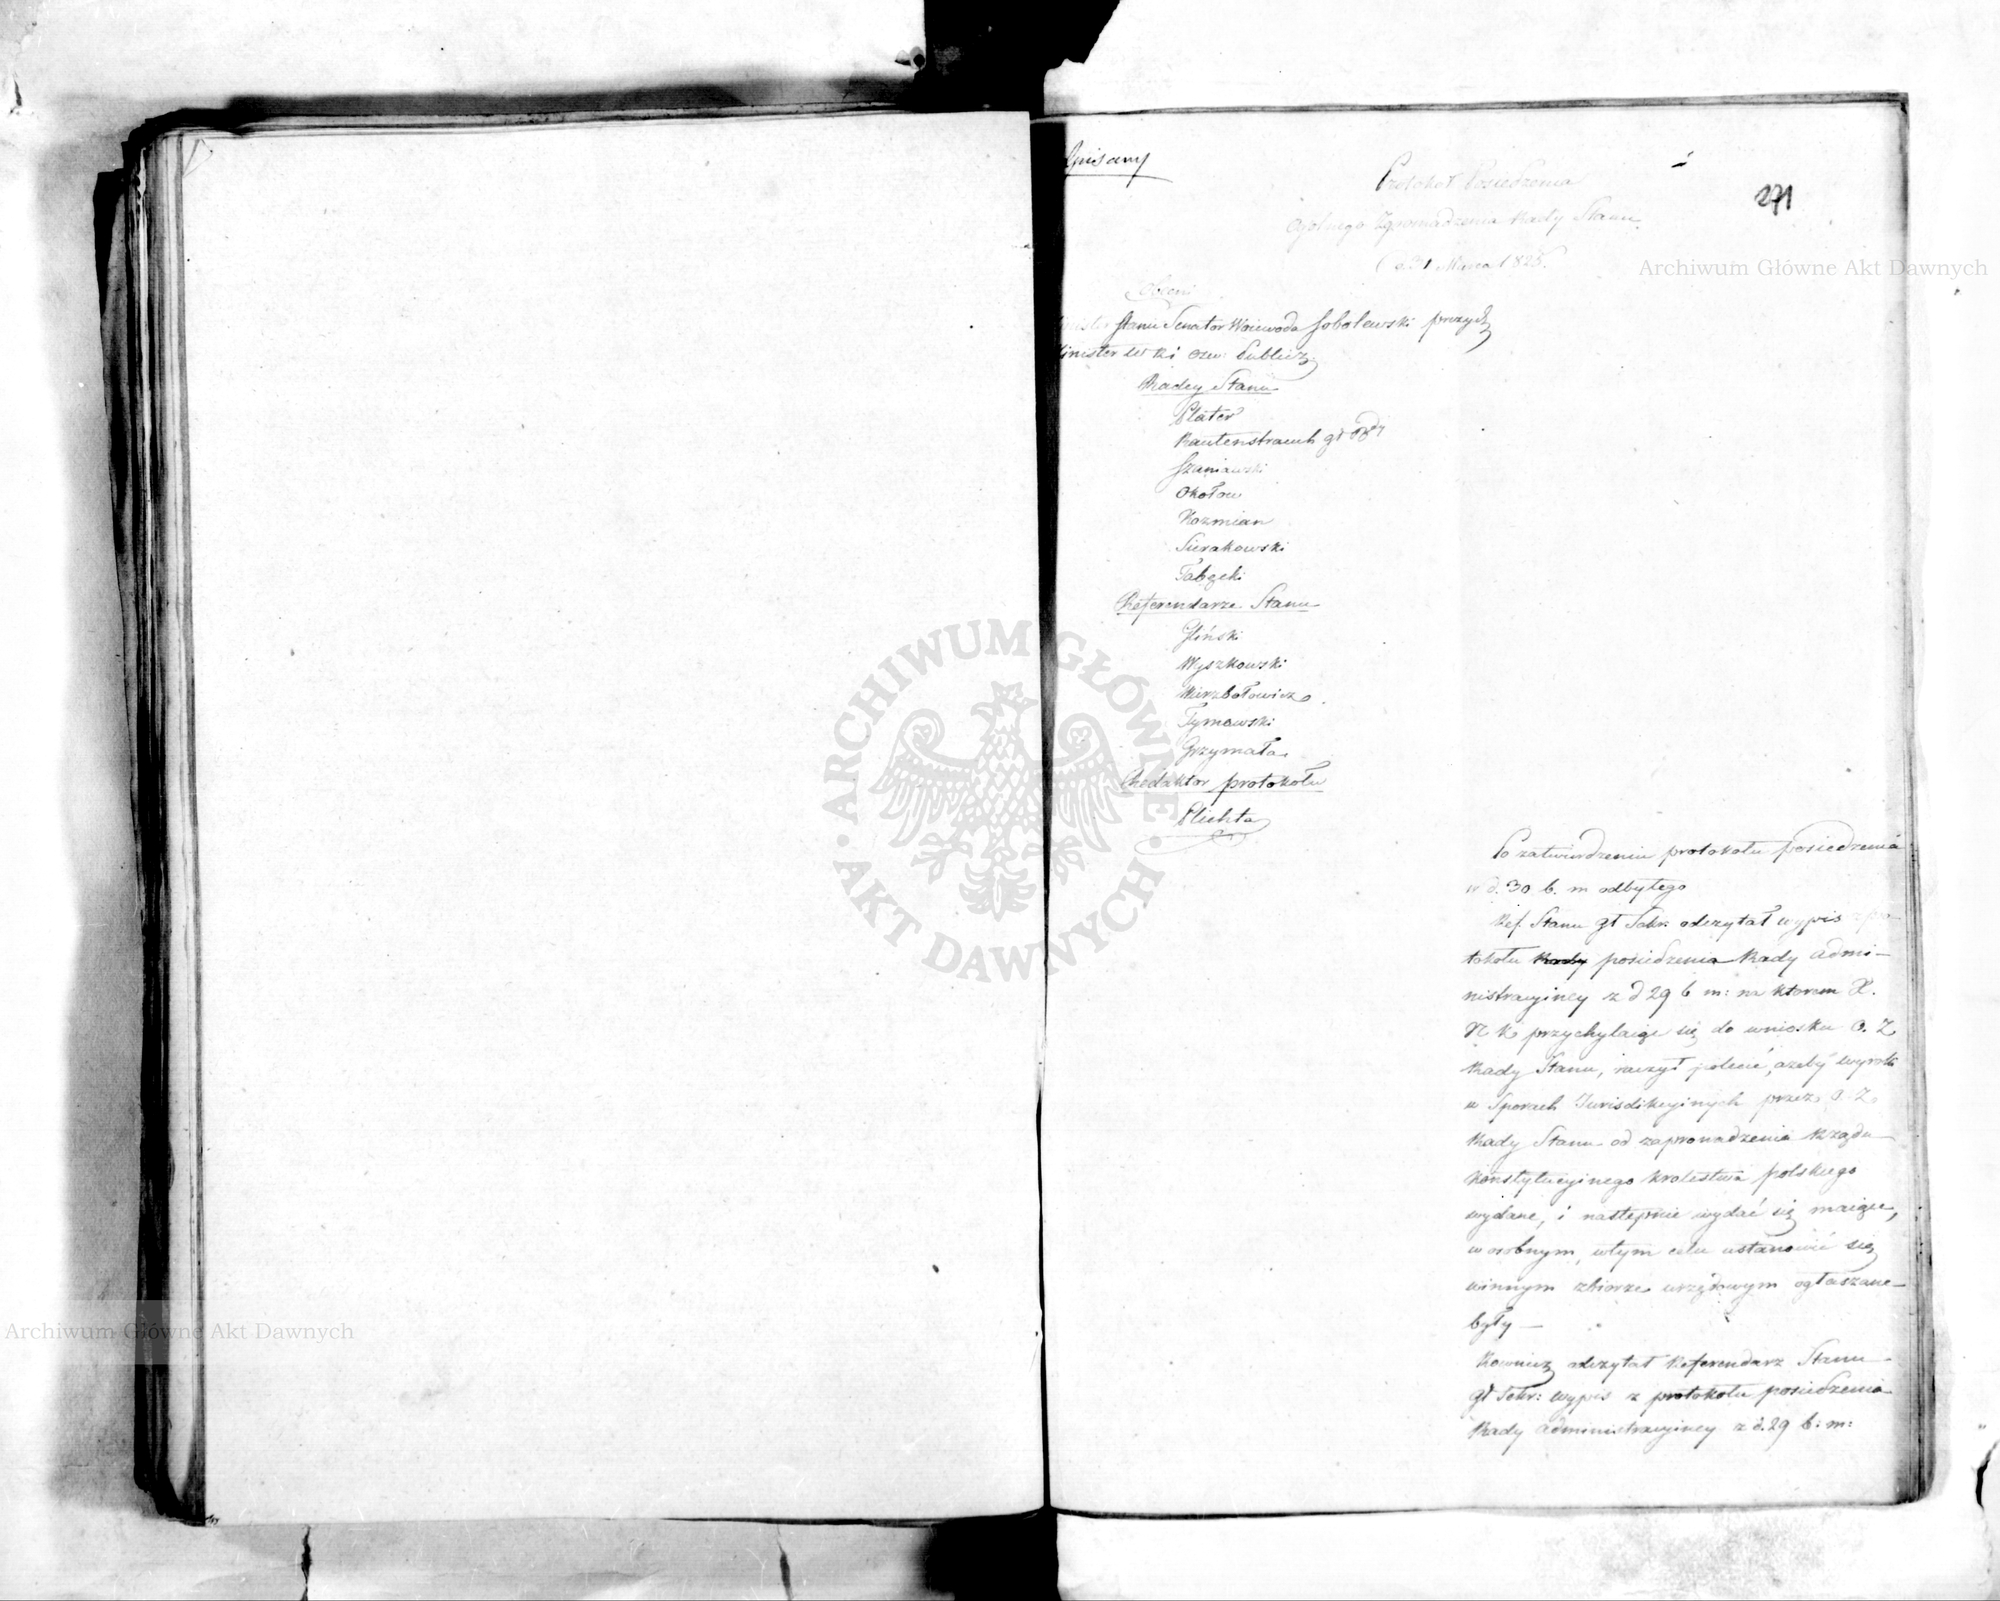 Wpisany
271
Protokół Posiedzenia
Ogólnego Zgromadzenia Rady Stanu
d 31 Marca 1825.
Obecni
Minister Stanu Senator Woiewoda Sobolewski prezyd
Minister Publicz
Radcy Stanu
Plater
Rautenstrauch
Szaniawski
Okołow
Kozmian
Sierakowski
Tabęcki
Referendarze Stanu
Gliński
Wyszkowski
Wierzbołowicz
Tymowski
Grzymała
Redaktor protokołu
Plichta
Po zatwierdzeniu protokołu posiedzenia
w d. 30 b. m odbytego
Ref. Stanu gł Sekr: odczytał wypis z pro-
tokołu Rady posiedzenia Rady admi-
nistracyiney z d 29 b m: na ktorem X.
N K przychylaiąc się do wniosku O. Z
Rady Stanu, raczył polecić, ażeby wyroki
w Sporach Jurisdikcyinych przez O. Z.
Rady Stanu od zaprowadzenia Rządu
Konstytucyinego Krolestwa polskiego
wydane, i następnie wydać się maiące,
w osobnym, w tym celu ustanowić się
winnym zbiorze urzędowym ogłaszane
były —
Rownież odczytał Referendarz Stanu
gł Sekr: wypis z protokołu posiedzenia
Rady administracyiney z d. 29 b: m:
Archiwum Główne Akt Dawnych
ARCHIWUM GŁÓWNE · AKT DAWNYCH ·
Archiwum Główne Akt Dawnych